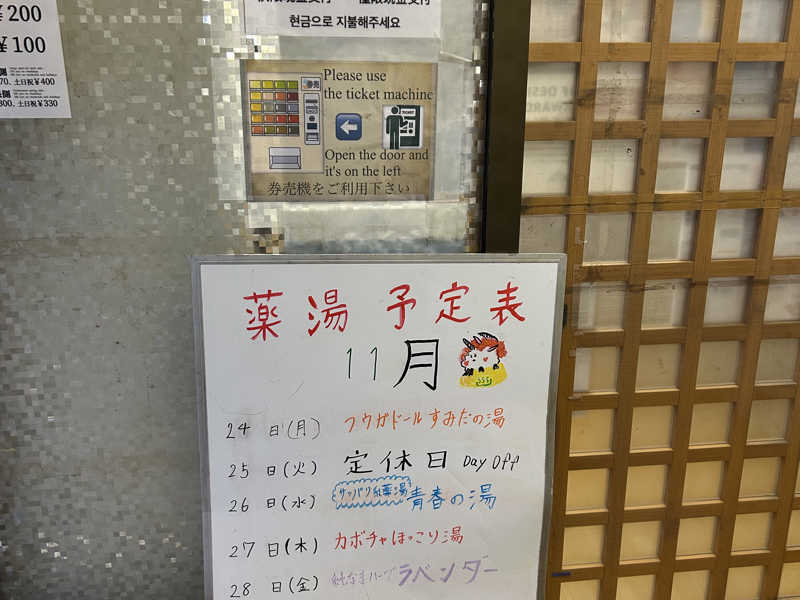 ¥200
¥100
70、土日祝¥400
300、土日祝¥330
현금으로 지불해주세요
Please use
the ticket machine
券売
TICKET
Open the door and
it's on the left
券売機をご利用下さい
薬湯 予定表
11月
24 日(月) フウガドールすみだの湯
25 日(火) 定休日 Day Off
26 日(水) サッパリ系薬湯 青春の湯
27 日(木) カボチャほっこり湯
28 日(金) ラベンダー